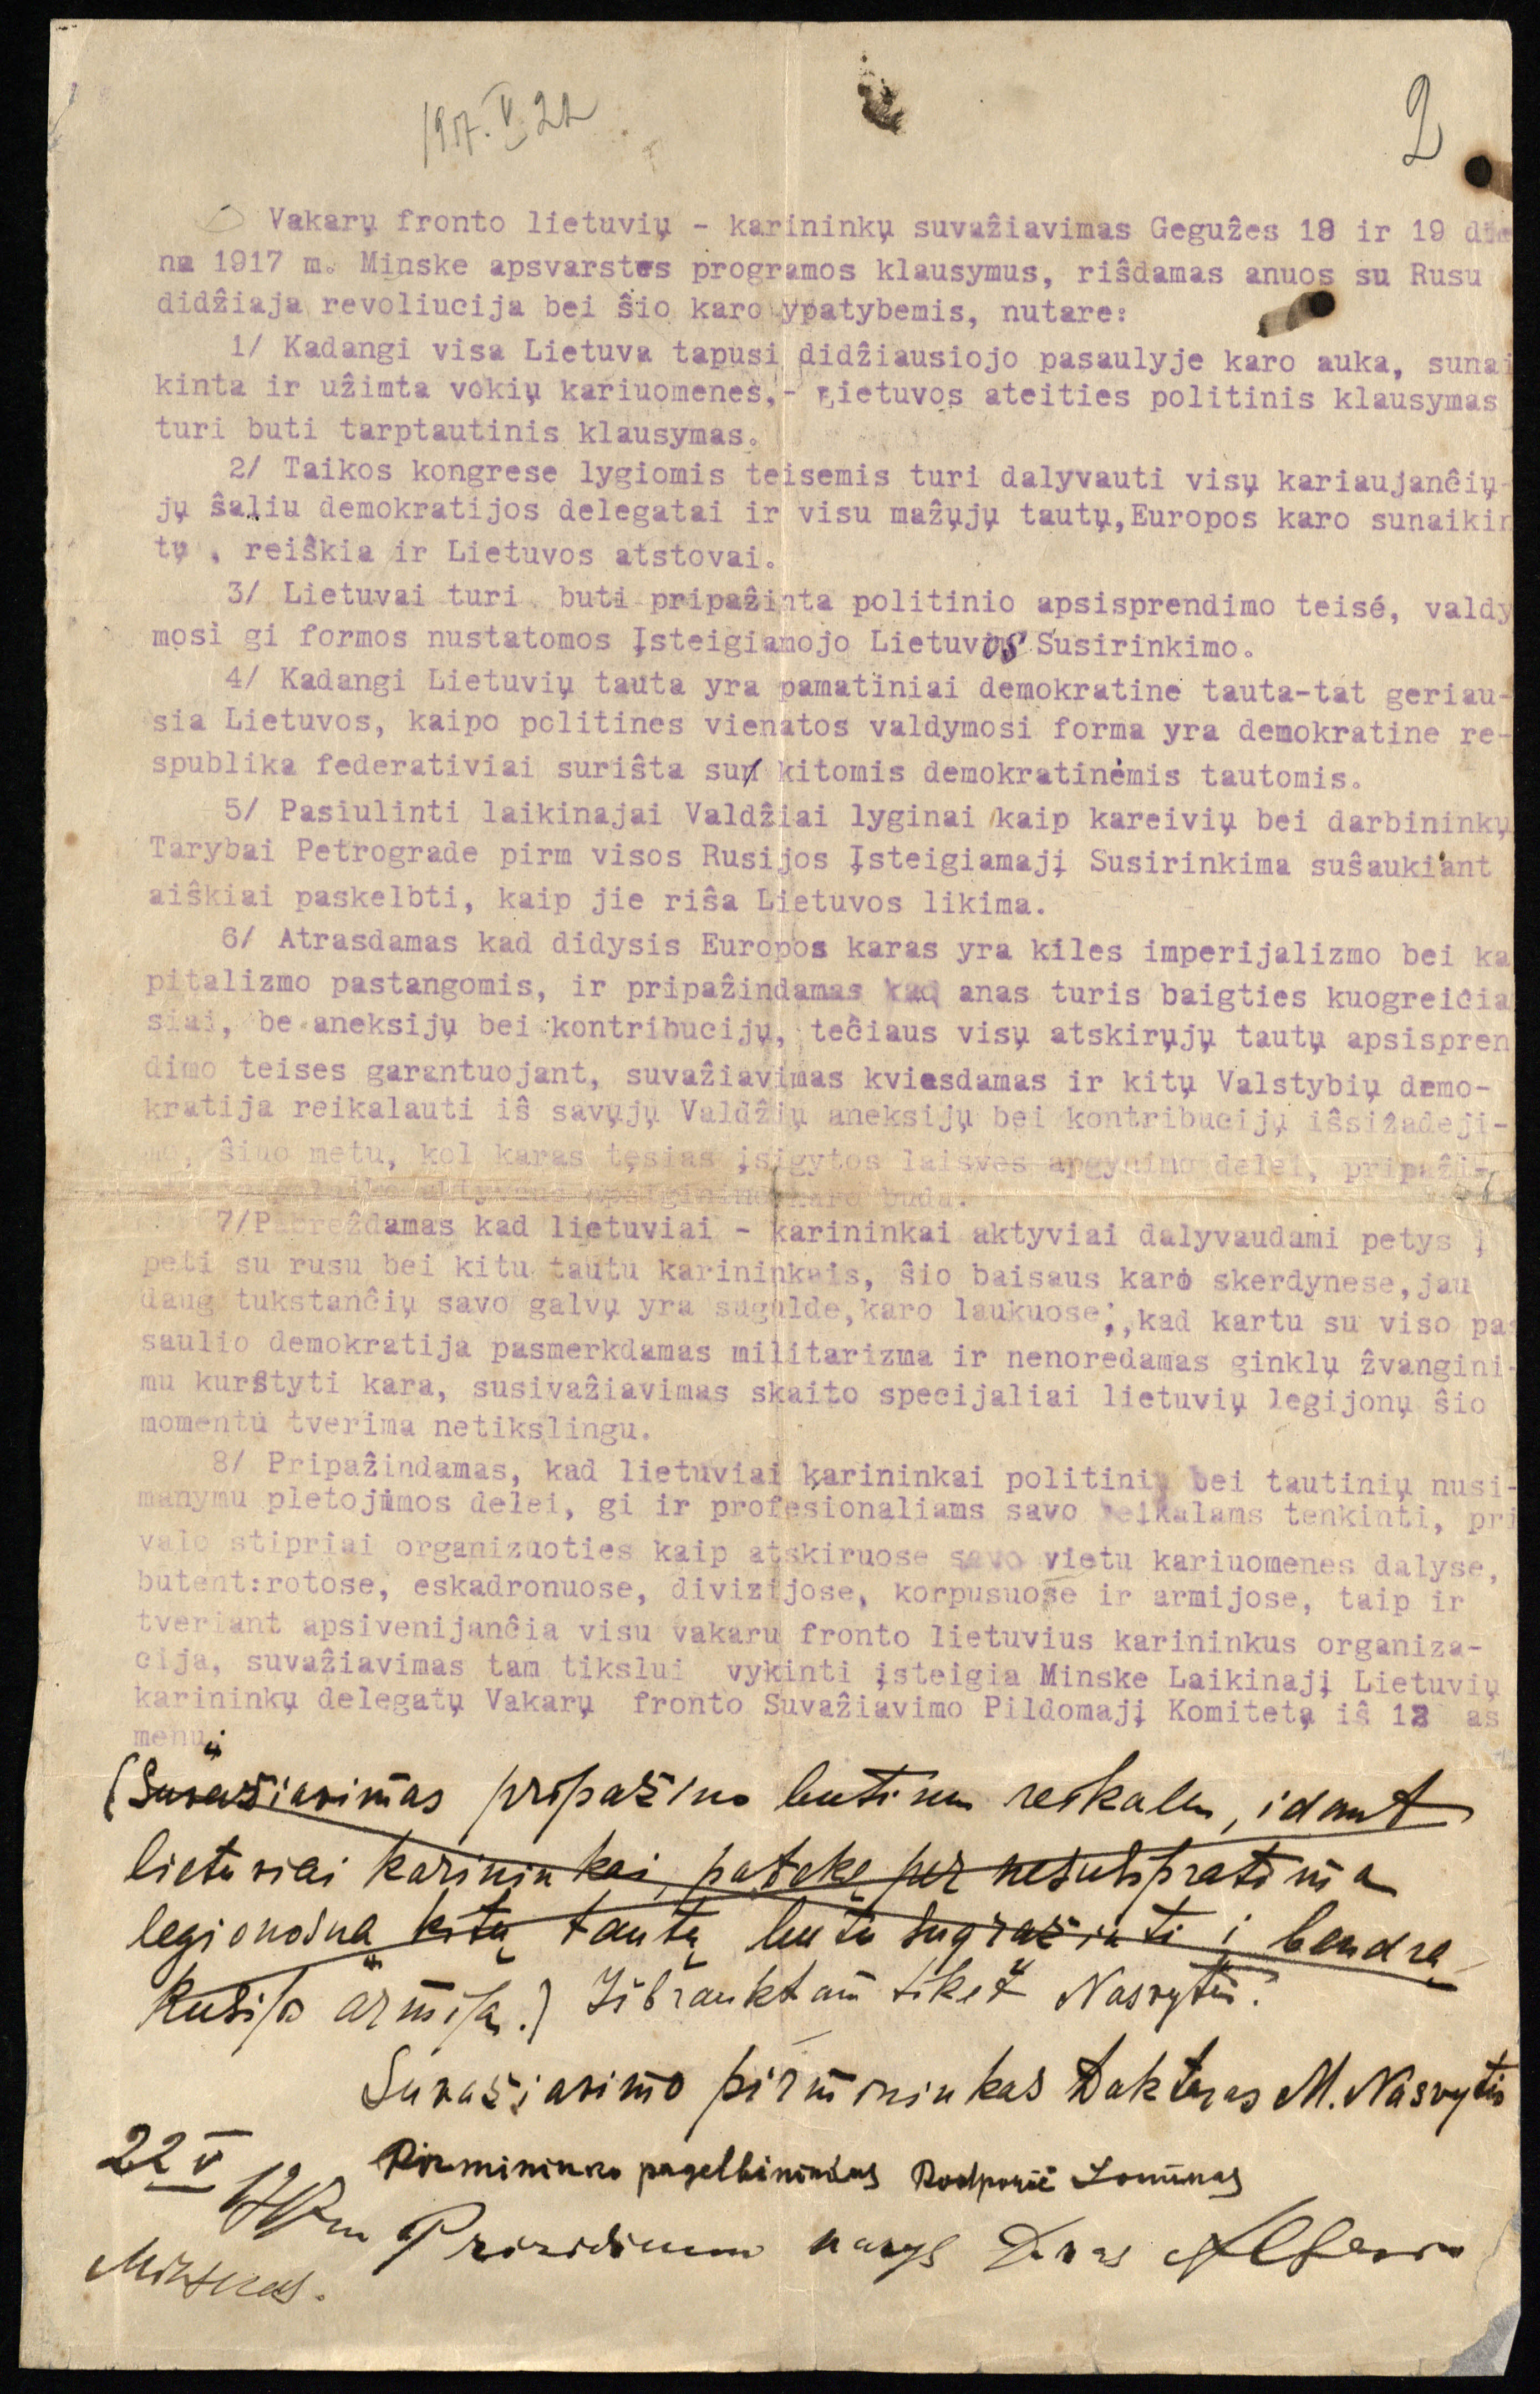 1917.V.22
2
Vakarų fronto lietuvių - karininkų suvažiavimas Gegužes 18 ir 19 die
na 1917 m. Minske apsvarstes programos klausymus, rišdamas anuos su Rusu
didžiaja revoliucija bei šio karo ypatybemis, nutare:
1/ Kadangi visa Lietuva tapusi didžiausiojo pasaulyje karo auka, sunai
kinta ir užimta vokių kariuomenes,- Lietuvos ateities politinis klausymas
turi buti tarptautinis klausymas.
2/ Taikos kongrese lygiomis teisemis turi dalyvauti visų kariaujančių-
jų šaliu demokratijos delegatai ir visu mažųjų tautų,Europos karo sunaikin
tų , reiškia ir Lietuvos atstovai.
3/ Lietuvai turi buti pripažinta politinio apsisprendimo teisé, valdy
mosi gi formos nustatomos Įsteigiamojo Lietuvos Susirinkimo.
4/ Kadangi Lietuvių tauta yra pamatiniai demokratine tauta-tat geriau-
sia Lietuvos, kaipo politines vienatos valdymosi forma yra demokratine re-
spublika federativiai surišta su kitomis demokratinėmis tautomis.
5/ Pasiulinti laikinajai Valdžiai lyginai kaip kareivių bei darbininkų
Tarybai Petrograde pirm visos Rusijos Įsteigiamajį Susirinkima sušaukiant
aiškiai paskelbti, kaip jie riša Lietuvos likima.
6/ Atrasdamas kad didysis Europos karas yra kiles imperijalizmo bei ka
pitalizmo pastangomis, ir pripažindamas kad anas turis baigties kuogreičia
siai, be aneksijų bei kontribucijų, tečiaus visų atskirųjų tautų apsispren
dimo teises garantuojant, suvažiavimas kviesdamas ir kitų Valstybių demo-
kratija reikalauti iš savųjų Valdžių aneksijų bei kontribucijų išsižadeji-
mo, šiuo metu, kol karas tęsias įsigytos laisves apgynimo delei, pripaži-
karo buda.
7/Pabreždamas kad lietuviai - karininkai aktyviai dalyvaudami petys į
peti su rusu bei kitu tautu karininkais, šio baisaus karo skerdynese,jau
daug tukstančių savo galvų yra sugulde,karo laukuose;,kad kartu su viso pas
saulio demokratija pasmerkdamas militarizma ir nenoredamas ginklų žvangini-
mu kurstyti kara, susivažiavimas skaito specijaliai lietuvių legijonų šio
momentu tverima netikslingu.
8/ Pripažindamas, kad lietuviai karininkai politinių bei tautinių nusi-
manymu pletojimos delei, gi ir profesionaliams savo reikalams tenkinti, pri
valo stipriai organizuoties kaip atskiruose savo vietu kariuomenes dalyse,
butent:rotose, eskadronuose, divizijose, korpusuose ir armijose, taip ir
tveriant apsivenijančia visu vakaru fronto lietuvius karininkus organiza-
cija, suvažiavimas tam tikslui vykinti įsteigia Minske Laikinajį Lietuvių
karininkų delegatų Vakarų fronto Suvažiavimo Pildomajį Komitetą iš 12 as
menu.
(Suvažiavimas pripažino butinu reikalu, idant
lietuviai karininkai, patekę per nesusipratima
legionosna kitų tautų butu sugrąžinti i bendrą
Rusijos armiją.) Išbrauktam tiket Nasvytis.
Suvažiavimo pirmininkas Daktaras M. Nasvytis
Pirmininko pagelbininkas Lomanas
22 V
Prizidiumo narys
Minskas.